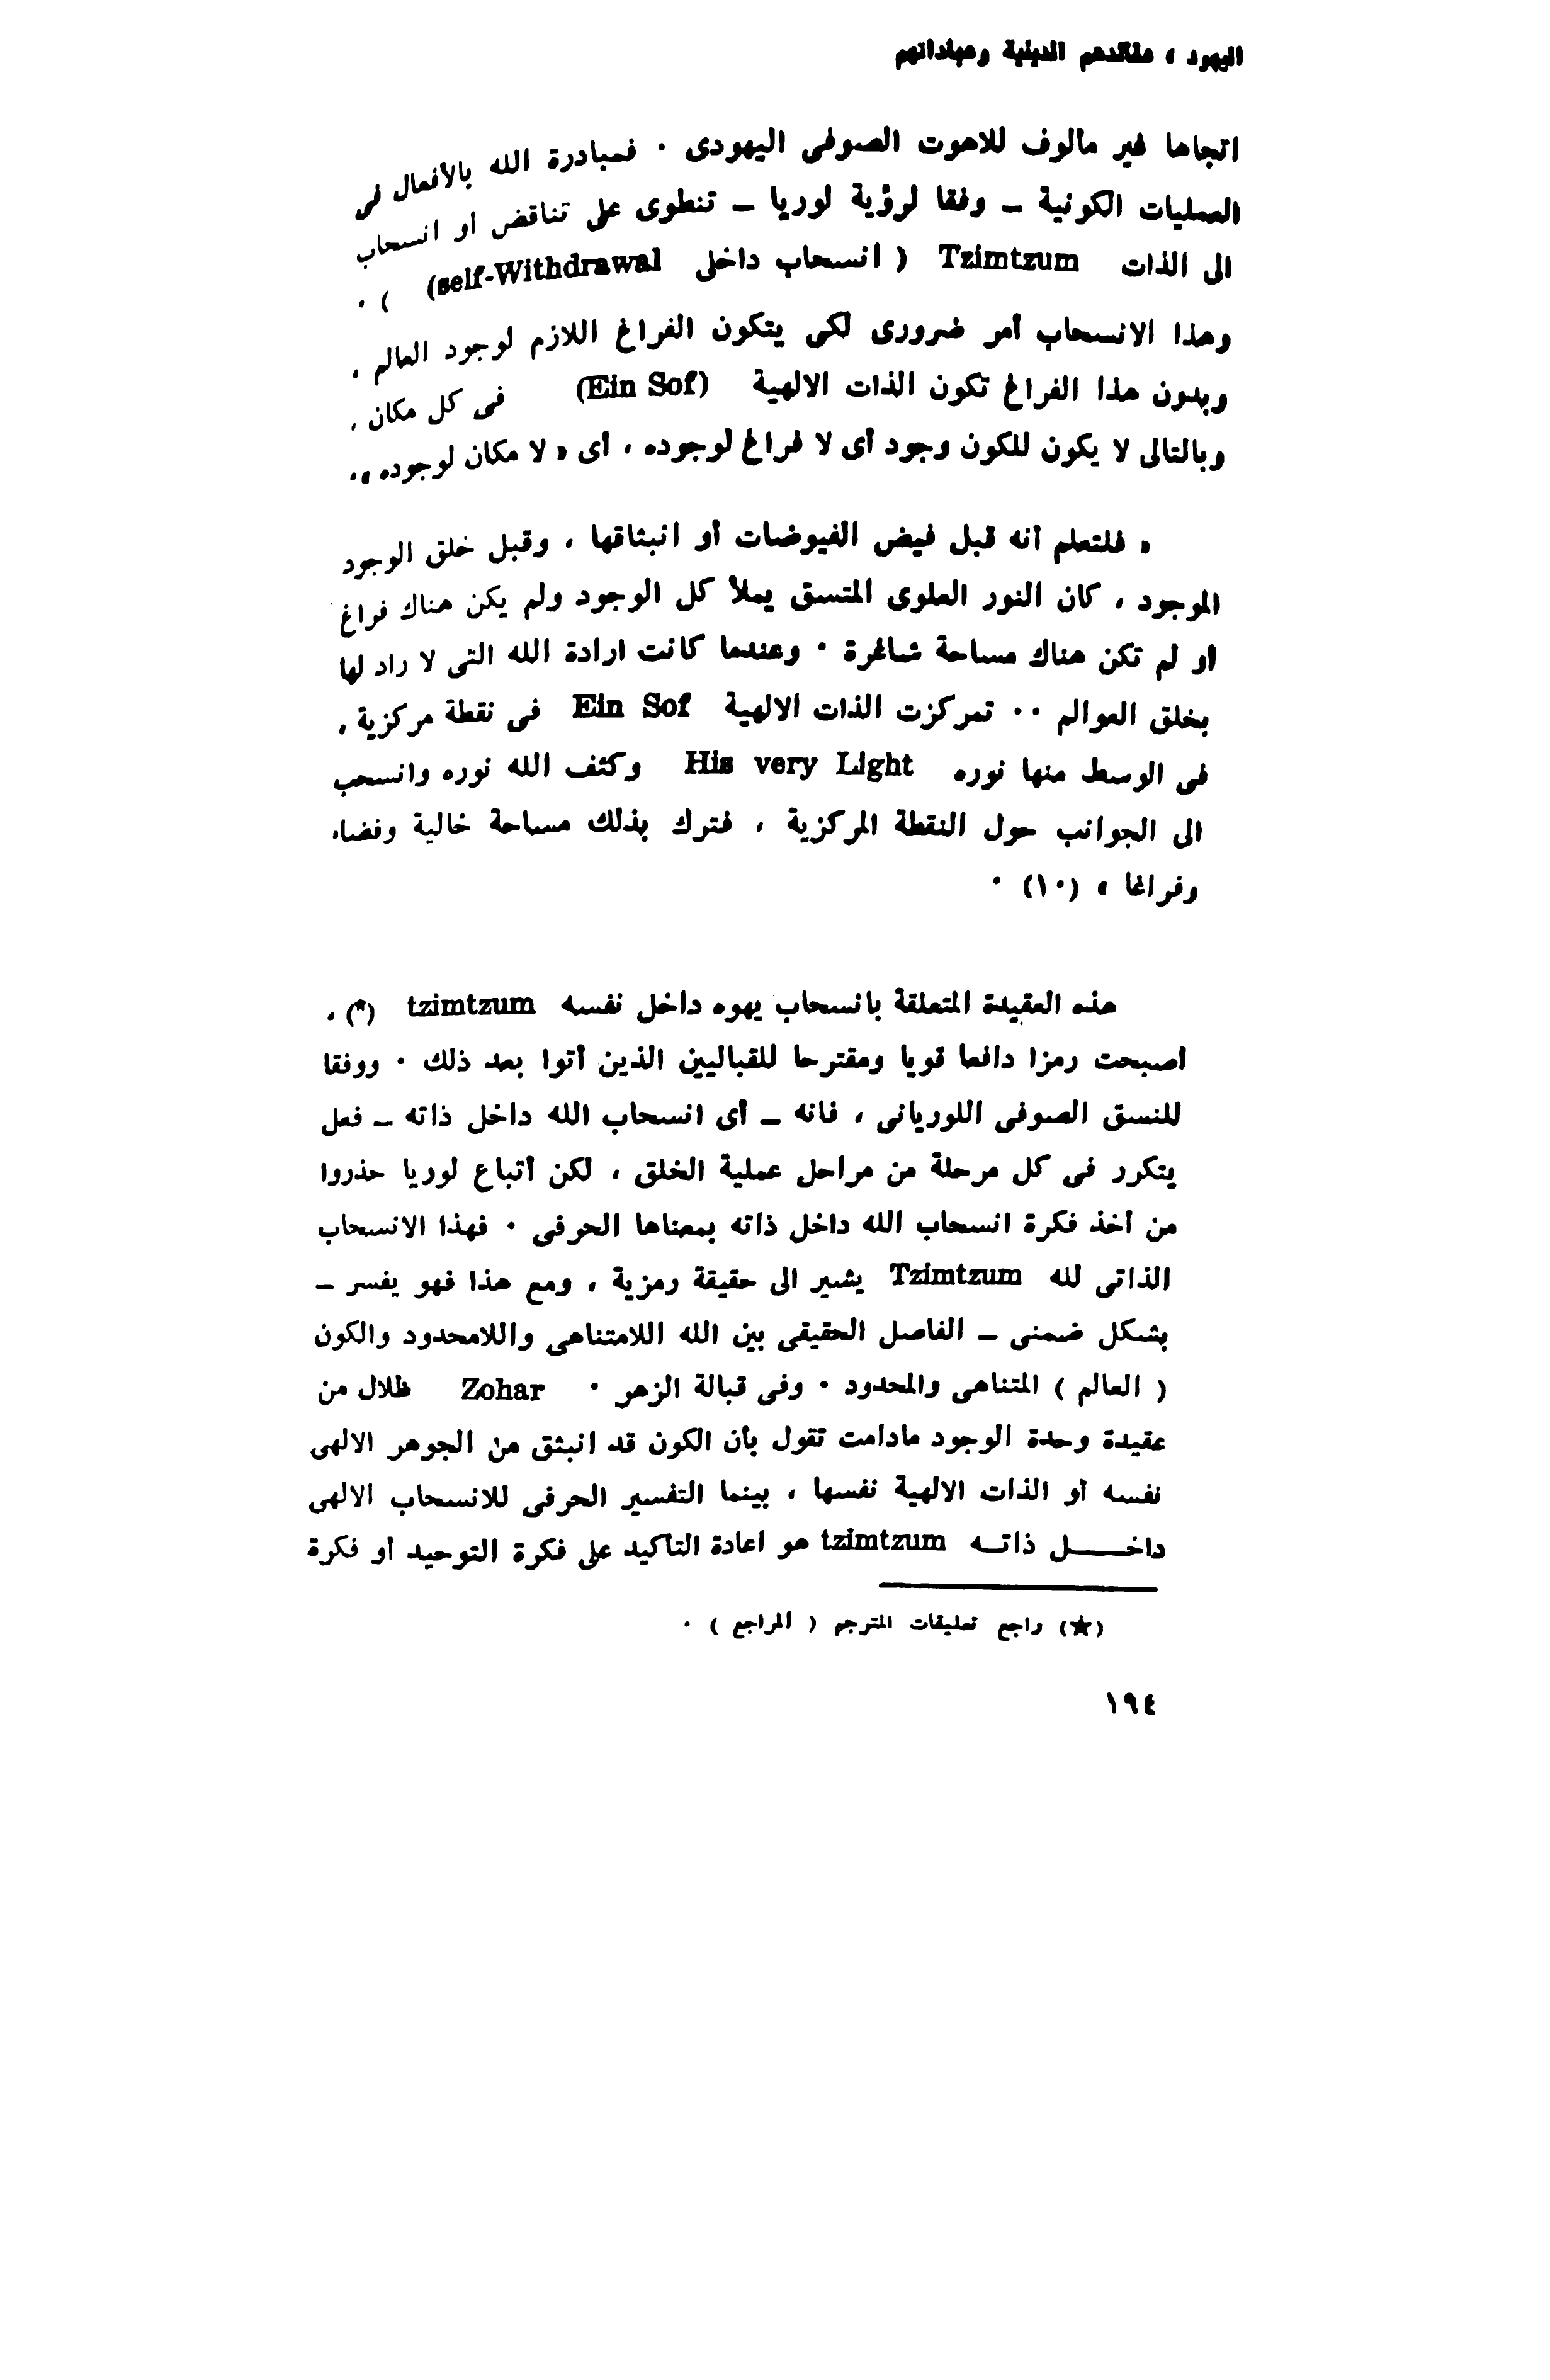 اليهود ، عقائدهم الدينية وعباداتهم
اتجاها غير مألوف للاهوت الصوفى اليهودى · فمبادرة الله بالأفعال فى
العمليات الكونية – وفقا لرؤية لوريا – تنطوى على تناقض أو انسحاب
الى الذات Tzimtzum ( انسحاب داخلى (self-Withdrawal ) ·
وهذا الانسحاب أمر ضرورى لكى يتكون الفراغ اللازم لوجود العالم ،
وبدون هذا الفراغ تكون الذات الالهية (Ein Sof) فى كل مكان ،
وبالتالى لا يكون للكون وجود أى لا فراغ لوجوده ، أى « لا مكان لوجوده » ·
« فلتعلم أنه قبل فيض الفيوضات أو انبثاقها ، وقبل خلق الوجود
الموجود ، كان النور العلوى المتسق يملأ كل الوجود ولم يكن هناك فراغ
أو لم تكن هناك مساحة شاغرة · وعندما كانت ارادة الله التى لا راد لها
بخلق العوالم ·· تمركزت الذات الالهية Ein Sof فى نقطة مركزية ،
فى الوسط منها نوره His very Light وكثف الله نوره وانسحب
الى الجوانب حول النقطة المركزية ، فترك بذلك مساحة خالية وفضاء
وفراغا » (١٠) ·
هذه العقيدة المتعلقة بانسحاب يهوه داخل نفسه tzimtzum (*) ،
أصبحت رمزا دافعا قويا ومقترحا للقباليين الذين أتوا بعد ذلك · ووفقا
للنسق الصوفى اللوريانى ، فانه – أى انسحاب الله داخل ذاته – فعل
يتكرر فى كل مرحلة من مراحل عملية الخلق ، لكن أتباع لوريا حذروا
من أخذ فكرة انسحاب الله داخل ذاته بمعناها الحرفى · فهذا الانسحاب
الذاتى لله Tzimtzum يشير الى حقيقة رمزية ، ومع هذا فهو يفسر –
بشكل ضمنى – الفاصل الحقيقى بين الله اللامتناهى واللامحدود والكون
( العالم ) المتناهى والمحدود · وفى قبالة الزهر · Zohar ظلال من
عقيدة وحدة الوجود مادامت تقول بأن الكون قد انبثق من الجوهر الالهى
نفسه أو الذات الالهية نفسها ، بينما التفسير الحرفى للانسحاب الالهى
داخـــــل ذاتــه tzimtzum هو اعادة التأكيد على فكرة التوحيد أو فكرة
(★) راجع تعليقات المترجم ( المراجع ) ·
١٩٤